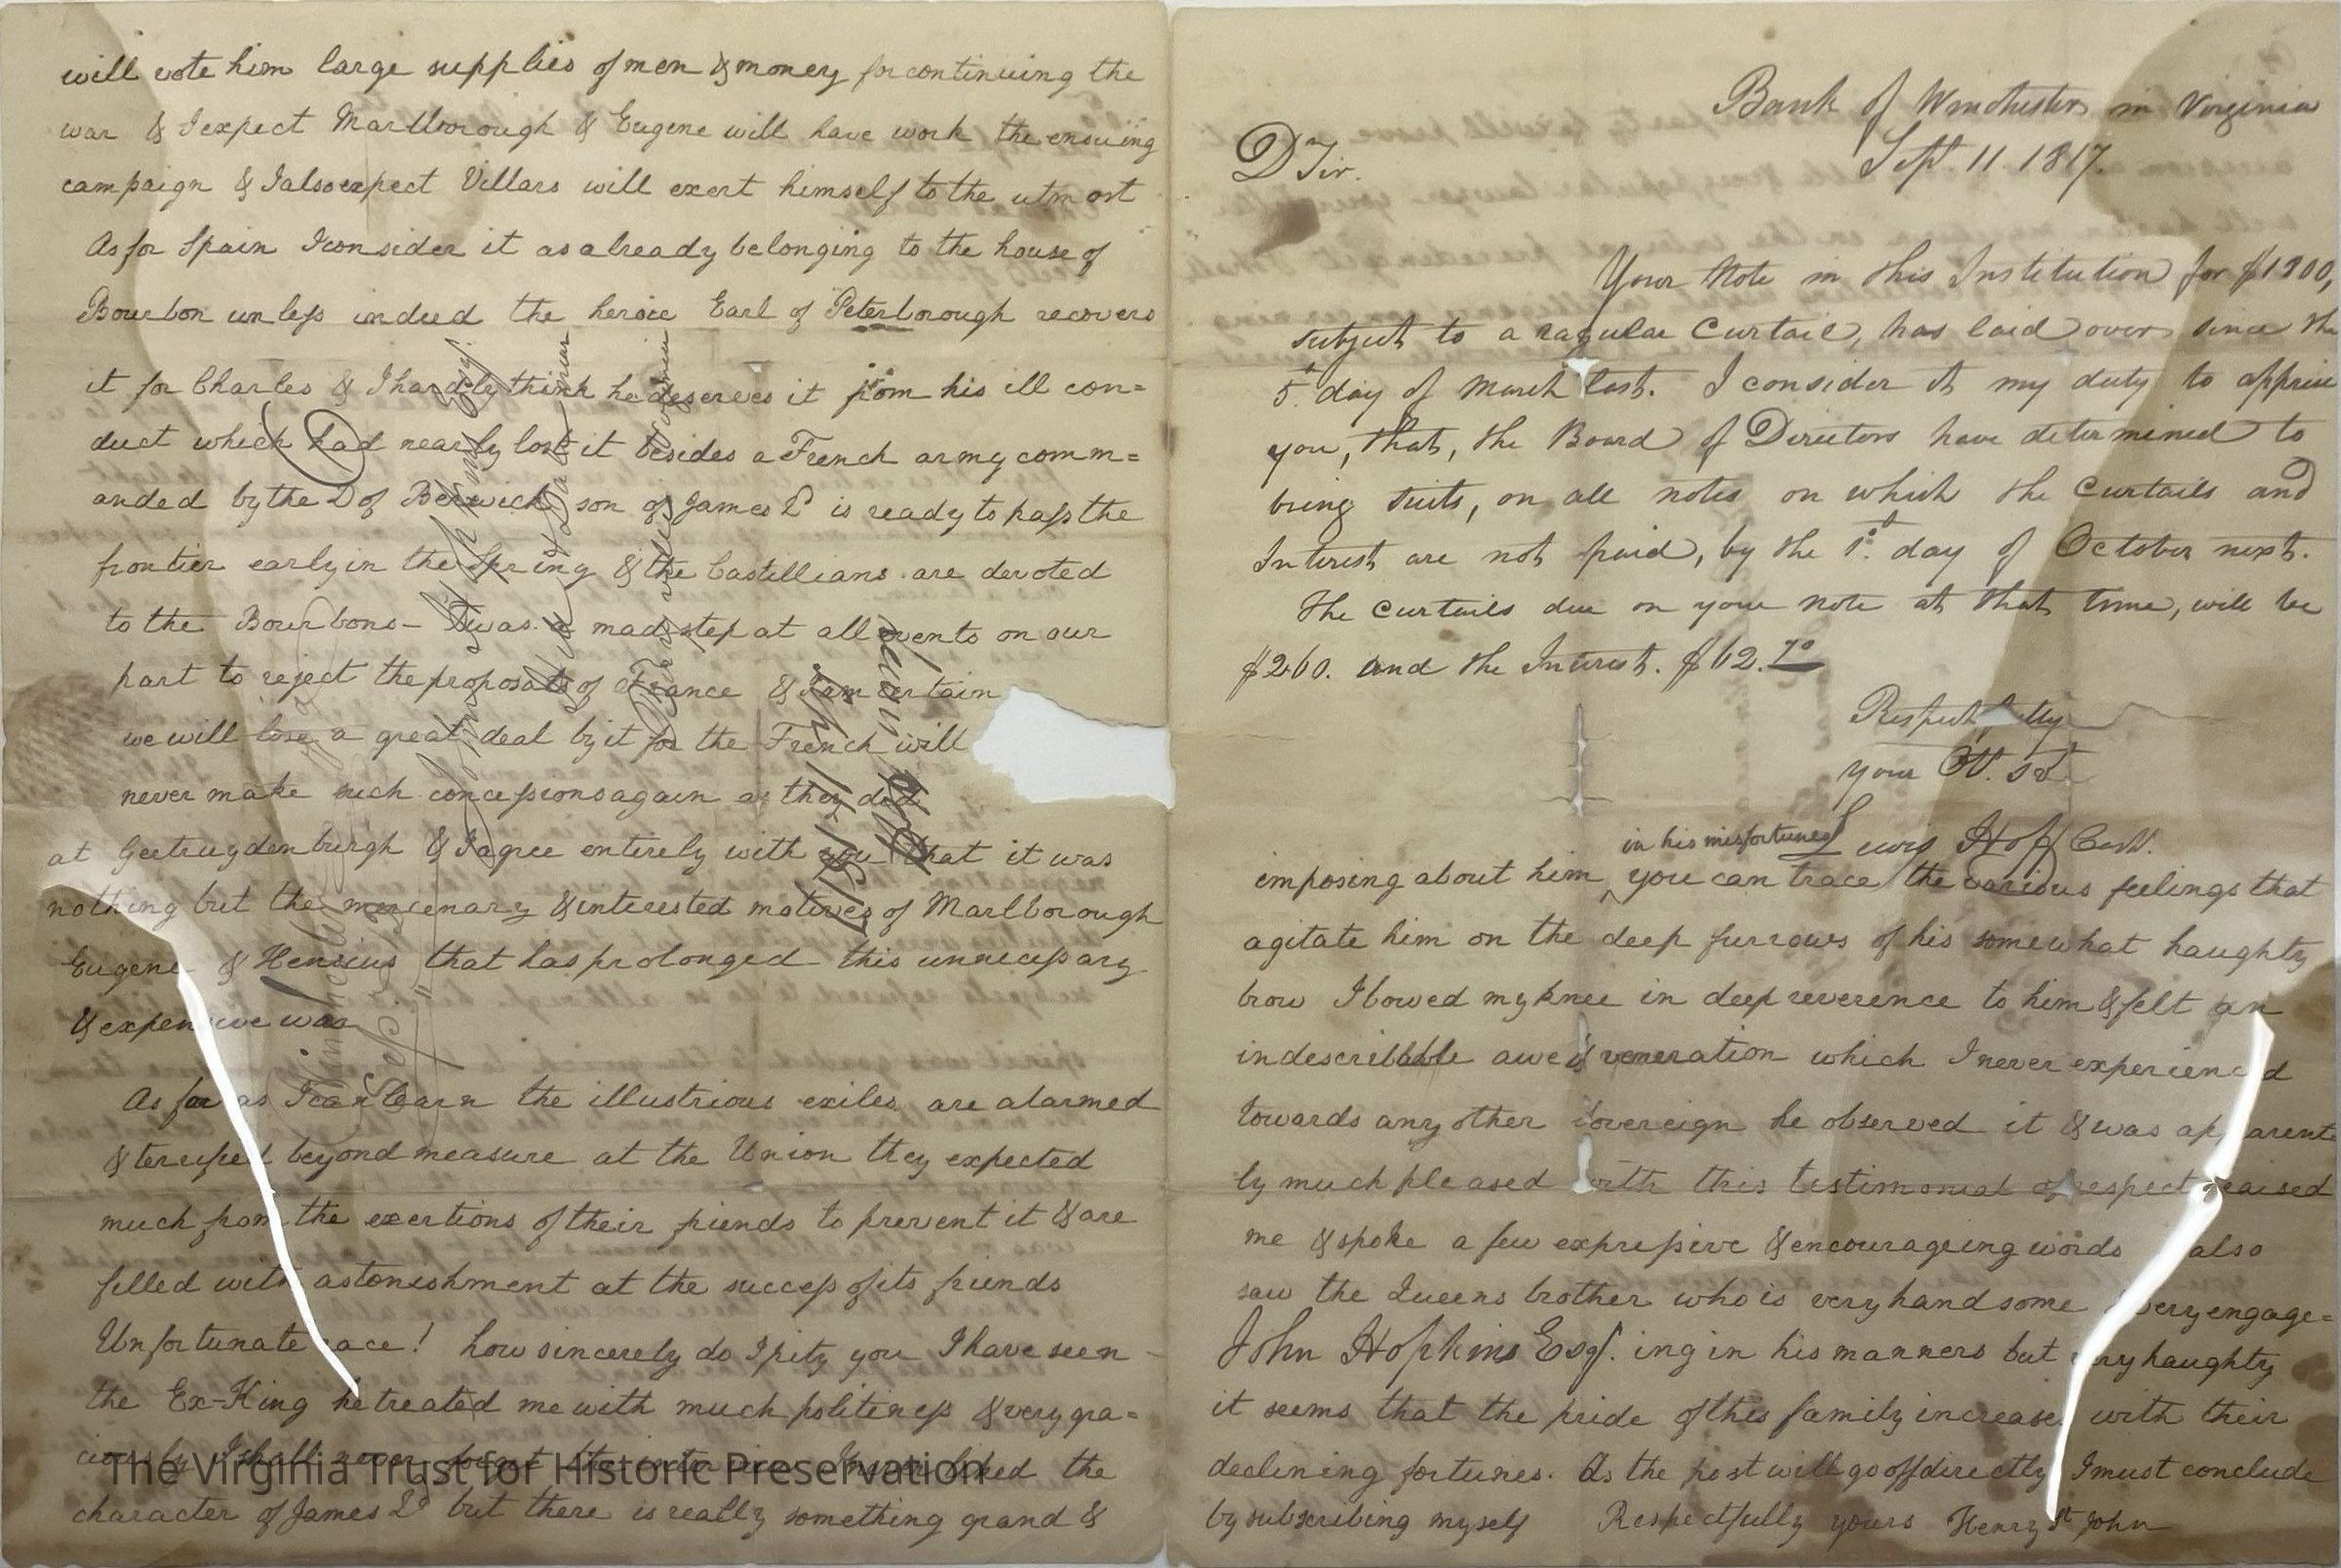 will vote him large supplies of men & money for continuing the
war & I expect Marlborough & Eugene will have work the ensuing
campaign & I also expect Villars will exert himself to the utmost
As for Spain I consider it as already belonging to the house of
Bourbon unless indeed the heroic Earl of Peterborough recovers
it for Charles & I hardly think he deserves it from his ill con=
duct which had nearly lost it besides a French army comm=
anded by the D of Berwick son of James 2d is ready to pass the
frontier early in the Spring & the Castillians are devoted
to the Bourbons - Twas a mad step at all events on our
part to reject the proposals of France & I am certain
we will lose a great deal by it for the French will
never make such concessions again as they did
at Geetruydenburgh & I agree entirely with you that it was
nothing but the mercenary & interested motives of Marlborough
Eugene & Hensius that has prolonged this unnecessary
& expensive war
As far as I can learn the illustrious exiles are alarmed
& terrified beyond measure at the Union they expected
much from the exertions of their friends to prevent it & are
filled with astonishment at the success of its friends
Unfortunate race! how sincerely do I pity you I have seen
the Ex-King he treated me with much politeness & very gra=
ciously I shall never forget the liked the
character of James 2d but there is really something grand &
The Virginia Trust for Historic Preservation
John Hopkins Esq.
Winchester
Bank of Winchester in Virginia
Sept. 11. 1817.
Dr Sir.
Your Note in this Institution for $1200,
subject to a ragular Curtail, has laid over since the
5th day of March last. I consider it my duty to apprise
you, that, the Board of Directors have determined to
bring suits, on all notes on which the Curtails and
Interest are not paid, by the 1st day of October next.
The Curtails due on your note at that time, will be
$260. and the Interest. $62.70
Respectfully
your Ob. St
Lewis Hoff Cash.
in his misfortunes
imposing about him ^ you can trace the various feelings that
agitate him on the deep furrows of his somewhat haughty
brow I bowed my knee in deep reverence to him & felt an
indescribable awe & veneration which I never experienced
towards any other sovereign he observed it & was apparent
ly much pleased with this testimonial of respect raised
me & spoke a few expressive & encourageing words also
saw the Queens brother who is very handsome very engage=
John Hopkins Esqr. ing in his manners but very haughty
it seems that the pride of this family increases with their
declining fortunes. As the post will go off directly I must conclude
by subscribing myself Respectfully yours Henry St John